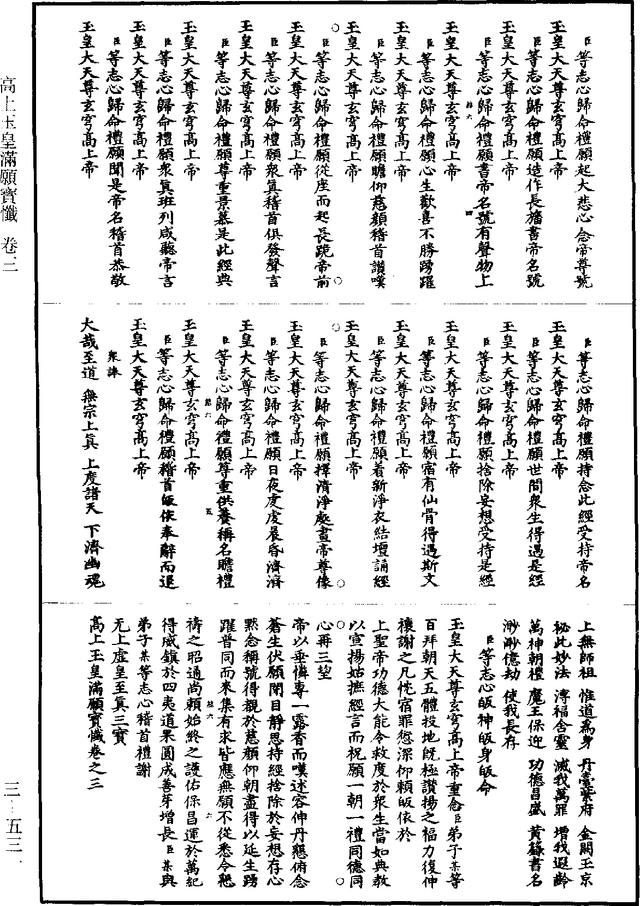 高上玉皇滿願寶懺　卷三
臣等志心歸命禮願起大悲心念帝尊號
玉皇大天尊玄穹高上帝
臣等志心歸命禮願造作長旛書帝名號
玉皇大天尊玄穹高上帝
臣等志心歸命禮願書帝名號有聲物上
玉皇大天尊玄穹高上帝
臣等志心歸命禮願心生歡喜不勝踴躍
玉皇大天尊玄穹高上帝
臣等志心歸命禮願瞻仰慈顏稽首讚嘆
玉皇大天尊玄穹高上帝
臣等志心歸命禮願從座而起長跪帝前
玉皇大天尊玄穹高上帝
臣等志心歸命禮願衆眞稽首俱發聲言
玉皇大天尊玄穹高上帝
臣等志心歸命禮願尊重景慕是此經典
玉皇大天尊玄穹高上帝
臣等志心歸命禮願衆眞班列咸聽帝言
玉皇大天尊玄穹高上帝
臣等志心歸命禮願聞是帝名稽首恭敬
玉皇大天尊玄穹高上帝
臣等志心歸命禮願持念此經受持帝名
玉皇大天尊玄穹高上帝
臣等志心歸命禮願世間衆生得遇是經
玉皇大天尊玄穹高上帝
臣等志心歸命禮願捨除妄想受持是經
玉皇大天尊玄穹高上帝
臣等志心歸命禮願宿有仙骨得遇斯文
玉皇大天尊玄穹高上帝
臣等志心歸命禮願着新淨衣結壇誦經
玉皇大天尊玄穹高上帝
臣等志心歸命禮願擇清淨處畫帝尊像
玉皇大天尊玄穹高上帝
臣等志心歸命禮願日夜虔虔晨昏濟濟
玉皇大天尊玄穹高上帝
臣等志心歸命禮願尊重供養稱名瞻禮
玉皇大天尊玄穹高上帝
臣等志心歸命禮願稽首皈依奉辭而退
玉皇大天尊玄穹高上帝
衆誦
大哉至道　無宗上眞　上度諸天　下濟幽魂
上無師祖　惟道爲身　丹臺紫府　金闕玉京
祕此妙法　溥福含靈　滅我萬罪　增我遐齡
萬神朝禮　魔王保迎　功德昌盛　黃籙書名
渺渺億劫　使我長存
臣等志心皈神皈身皈命
玉皇大天尊玄穹高上帝重念臣弟子某等
百拜朝天五體投地既極讚揚之福力復伸
禳謝之凡忱宿罪愆深仰賴皈依於
上聖帝功德大能令救度於衆生當如典教
以宣揚姑撫經言而祝願一朝一禮同德同
心再三望
帝以垂憐專一露香而嘆述容伸丹懇俯念
蒼生伏願閉目靜思持經捨除於妄想存心
默念稱號得覩於慈顏仰朝盡得以延生踴
躍普同而來集有求皆應無願不從悉令懇
禱之昭通尚賴始終之護佑保昌運於萬紀
得威鎮於四夷道果圓成善芽增長臣某與
弟子某等志心稽首禮謝
无上虛皇至眞三寶
高上玉皇滿願寶懺卷之三
三–五三